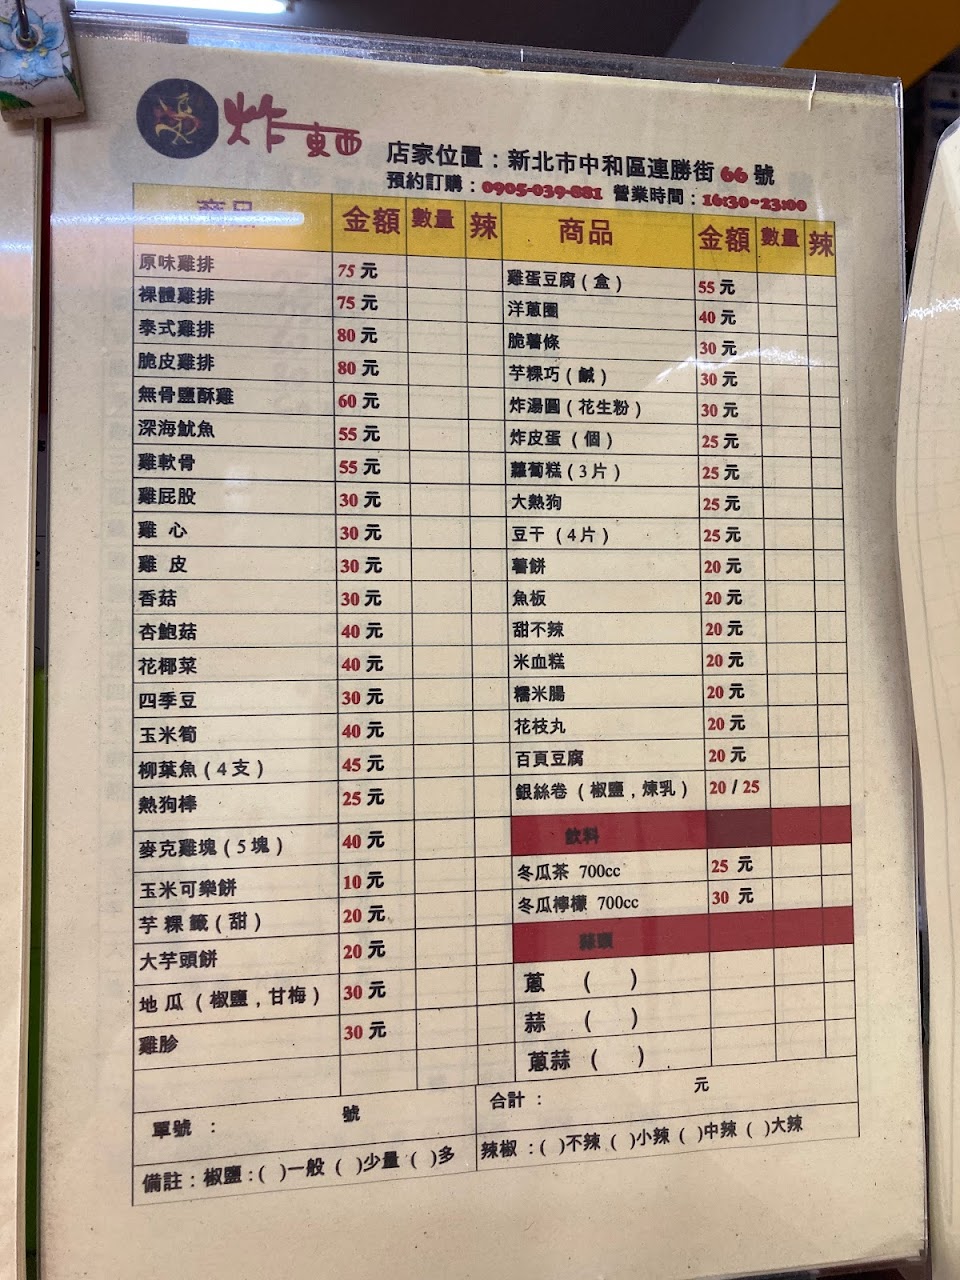 炸東西
店家位置：新北市中和區連勝街 66 號
預約訂購：0905-039-881 營業時間：16:30~23:00
商品 金額 數量 辣
原味雞排 75 元
裸體雞排 75 元
泰式雞排 80 元
脆皮雞排 80 元
無骨鹽酥雞 60 元
深海魷魚 55 元
雞軟骨 55 元
雞屁股 30 元
雞 心 30 元
雞 皮 30 元
香菇 30 元
杏鮑菇 40 元
花椰菜 40 元
四季豆 30 元
玉米筍 40 元
柳葉魚（4 支） 45 元
熱狗棒 25 元
麥克雞塊（5 塊） 40 元
玉米可樂餅 10 元
芋 粿 籤（甜） 20 元
大芋頭餅 20 元
地 瓜 （椒鹽，甘梅） 30 元
雞胗 30 元
商品 金額 數量 辣
雞蛋豆腐（盒） 55 元
洋蔥圈 40 元
脆薯條 30 元
芋粿巧（鹹） 30 元
炸湯圓（花生粉） 30 元
炸皮蛋 （個） 25 元
蘿蔔糕（3 片） 25 元
大熱狗 25 元
豆干 （4 片） 25 元
薯餅 20 元
魚板 20 元
甜不辣 20 元
米血糕 20 元
糯米腸 20 元
花枝丸 20 元
百頁豆腐 20 元
銀絲卷 （椒鹽，煉乳） 20 / 25
飲料
冬瓜茶 700cc 25 元
冬瓜檸檬 700cc 30 元
蒜頭
蔥 （ ）
蒜 （ ）
蔥蒜 （ ）
單號 ： 號 合計： 元
備註：椒鹽：( )一般 ( )少量 ( )多 辣椒：( )不辣 ( )小辣 ( )中辣 ( )大辣